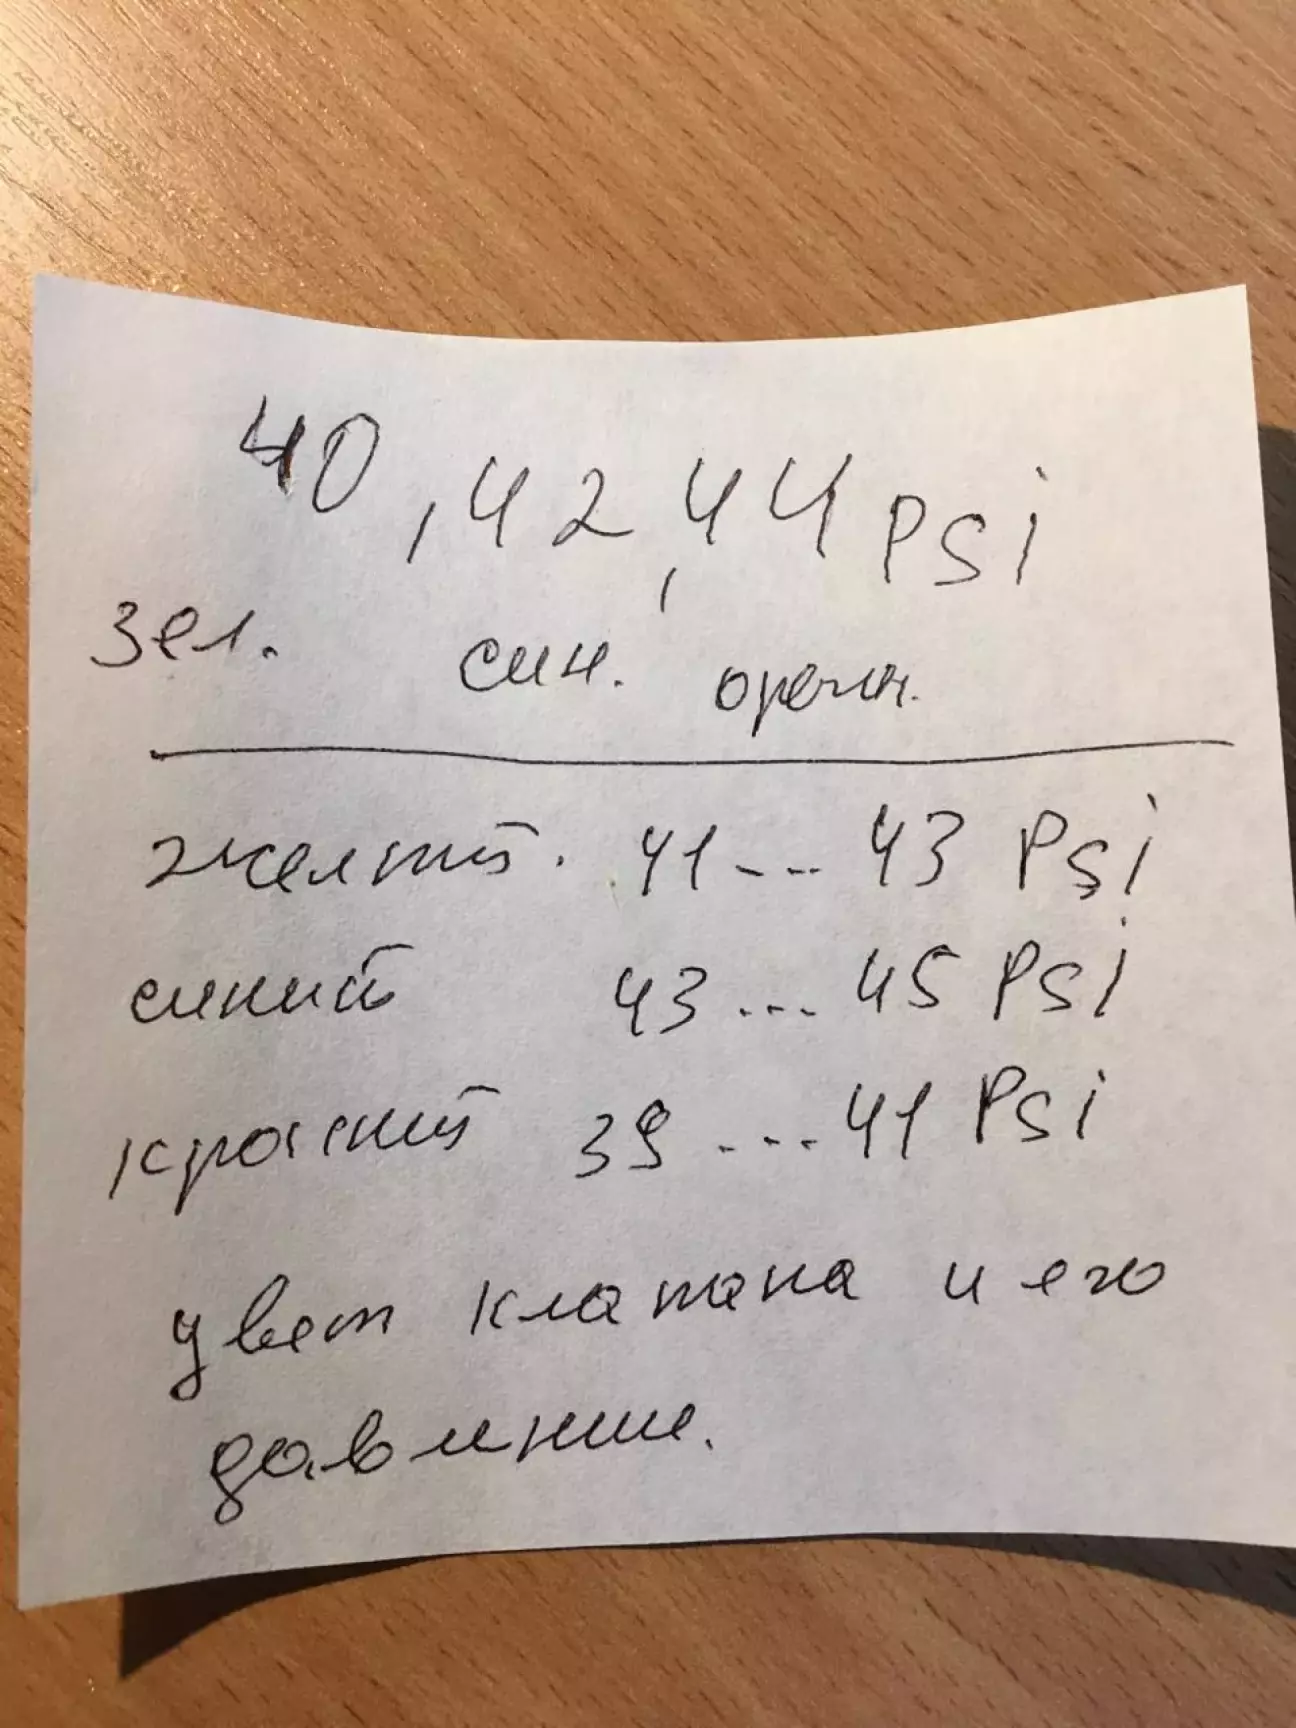 40, 42, 44 PSi
зел. син. оренж.
желтый. 41--- 43 PSi
синий 43 ... 45 PSi
красный 39 ... 41 PSi
цвет клапана и его
давление.